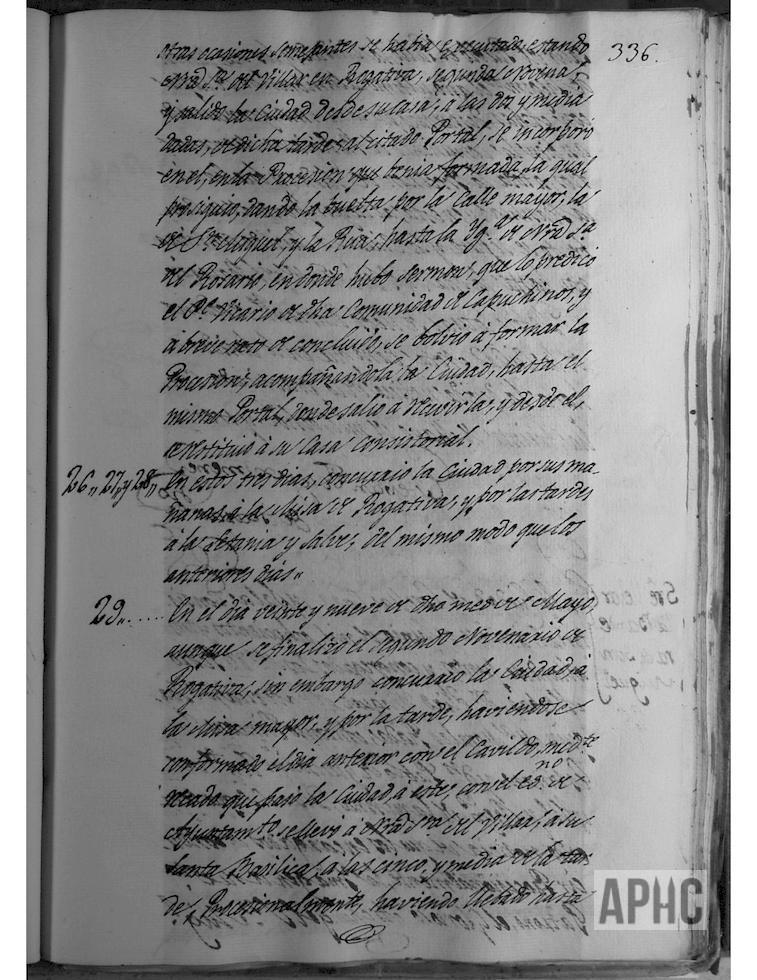 336.
otras ocasiones semejantes se habia executado estando
Nrâ Srâ del Villar en Rogativa, segunda Novena;
y salido la Ciudad desde su casa, a las dos y media
dadas, de dicha tarde al citado Portal, se incorporó
en el, en la Procesion que benia formada, la qual
prosiguio, dando la buelta por la Calle mayor, la
de Sn Miguel, y la Rua, hasta la Yg.ª de Nrâ Sª
del Rosario, en donde hubo Sermon, que lo predicó
el Pe Vicario de dha Comunidad de Capuchinos, y
a breve rato de concluido, se bolvio à formar la
Procesion, acompañandola la Ciudad, hasta el
mismo Portal, donde salio à recivirla, y desde el,
se restituió à su Casa Consistorial.
26,, 27,, y 28,, En estos tres dias, concurrio la Ciudad por sus ma
ñanas, à la Misa de Rogativa, y por las tardes
à la Letania y Salve, del mismo modo que los
anteriores dias,,
29,,..... En el dia veinte y nueve de dho mes de Mayo,
aunque se finalizo el segundo Novenario de
Rogativa, sin embargo concurrio la Ciudad, à
la Misa mayor, y por la tarde, haviendose
conformado el dia anterior con el Cavildo, medte
recado que paso la Ciudad, à este, con el esno de
Ayuntamto se llevó à Nrâ Sra del Villar, à su
Santa Basilica, à las cinco, y media de la tar
de, Procesionalmente, haviendo llebado hasta
APHC